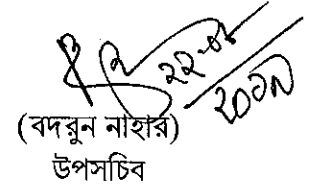 ২২-০৮
২০১৯
(বদরুন নাহার)
উপসচিব